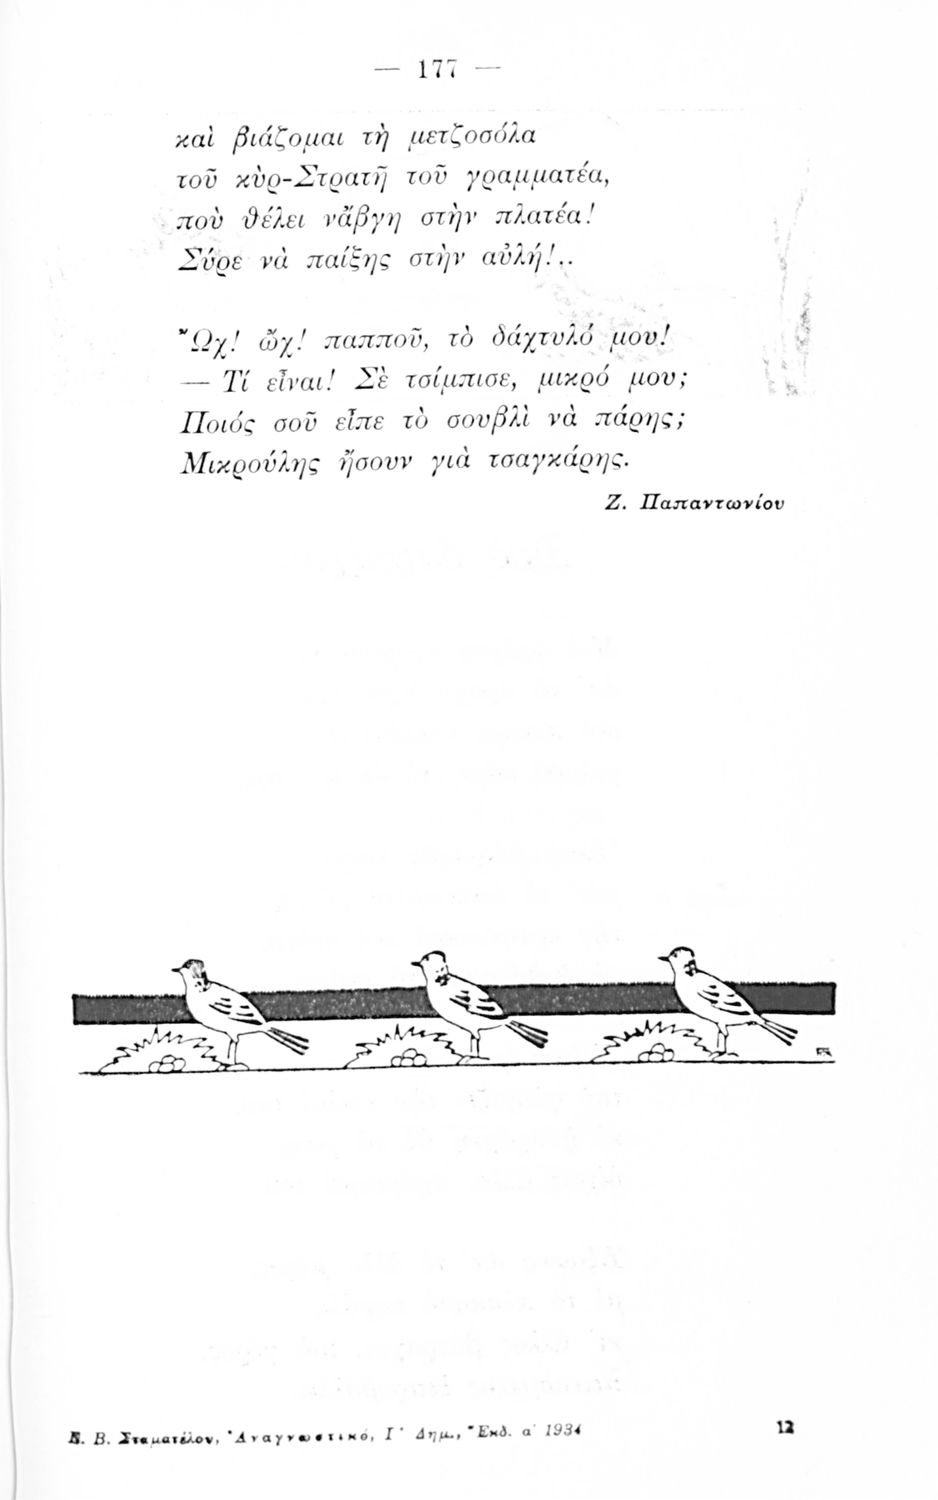 — 177 —
καὶ βιάζομαι τὴ μετζοσόλα
τοῦ κὺρ-Στρατῆ τοῦ γραμματέα,
ποὺ θέλει νἄβγη στὴν πλατέα!
Σύρε νὰ παίξης στὴν αὐλή!..
Ὢχ! ὤχ! παπποῦ, τὸ δάχτυλό μου!
— Τί εἶναι! Σὲ τσίμπισε, μικρό μου;
Ποιός σοῦ εἶπε τὸ σουβλὶ νὰ πάρης;
Μικρούλης ἤσουν γιὰ τσαγκάρης.
Ζ. Παπαντωνίου
Β. Σταματέλου, Ἀναγνωστικό, Γ΄ Δημ., Ἔκδ. α΄ 1934
12